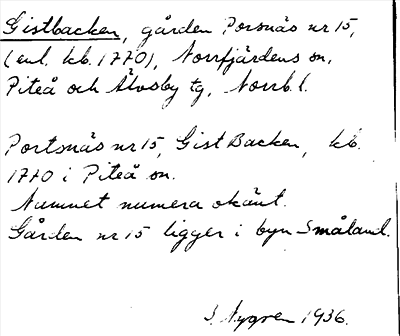 Gistbacken, gården Porsnäs nr 15,
(enl. kb. 1770), Norrfjärdens sn,
Piteå och Älvsby tg, Norrb. l.
Portsnäs nr 15, Gist Backen, kb.
1770 i Piteå sn.
Namnet numera okänt.
Gården nr 15 ligger i byn Småland.
S. Nygren 1936.